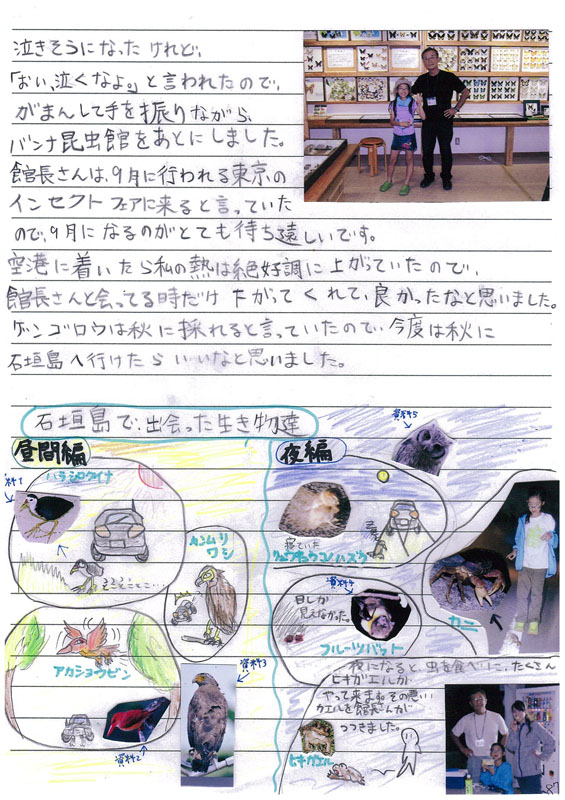 泣きそうになったけれど、
「おい、泣くなよ。」と言われたので、
がまんして手を振りながら、
バンナ昆虫館をあとにしました。
館長さんは、9月に行われる東京の
インセクトフェアに来ると言っていた
ので、9月になるのがとても待ち遠しいです。
空港に着いたら私の熱は絶好調に上がっていたので、
館長さんと会ってる時だけ下がってくれて、良かったなと思いました。
ゲンゴロウは秋に採れると言っていたので、今度は秋に
石垣島へ行けたらいいなと思いました。
石垣島で出会った生き物達
昼間編
ハラシロクイナ
資料1
カンムリ
ワシ
アカショウビン
資料2
資料3
夜編
資料5
寝ていた
リュウキュウコノハズク
目しか
見えなかった。
資料4
フルーツバット
カニ
夜になると、虫を食べに、たくさん
ヒキガエルが
やって来ます。その思い
カエルを館長さんが
つつきました。
ヒキガエル